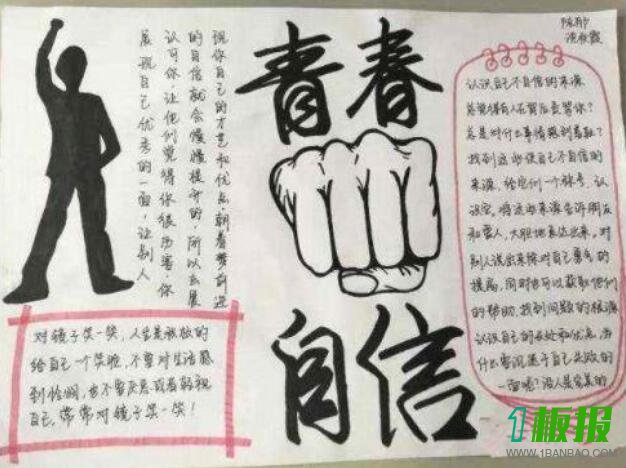 青春
自信
展现自己优秀的一面,让别人
认可你,让他们觉得你很厉害你
的自信就会慢慢提升的,所以去展
现你自己的才艺和优点,朝着梦前进
对镜子笑一笑,人生是被做的
给自己一个笑脸,不要对生活感
到怕悯,也不要厌恶或着弱视
自己,常常对镜子笑一笑!
认识自己不自信的来源
总觉得有人在背后责骂你?
总是对什么事情感到羞耻?
找到这些使自己不自信的
来源,给它们一个称号、认
识它。将这些来源告诉朋友
和家人,大胆地表达出来。对
别人说出来除对自己勇气的
提高,同时也可以获取他们
的帮助,找到问题的根源
认识自己的长处和优点,为
什么要沉迷于自己失败的
一面呢?没人是完美的
1板报
WWW.1BANBAO.COM